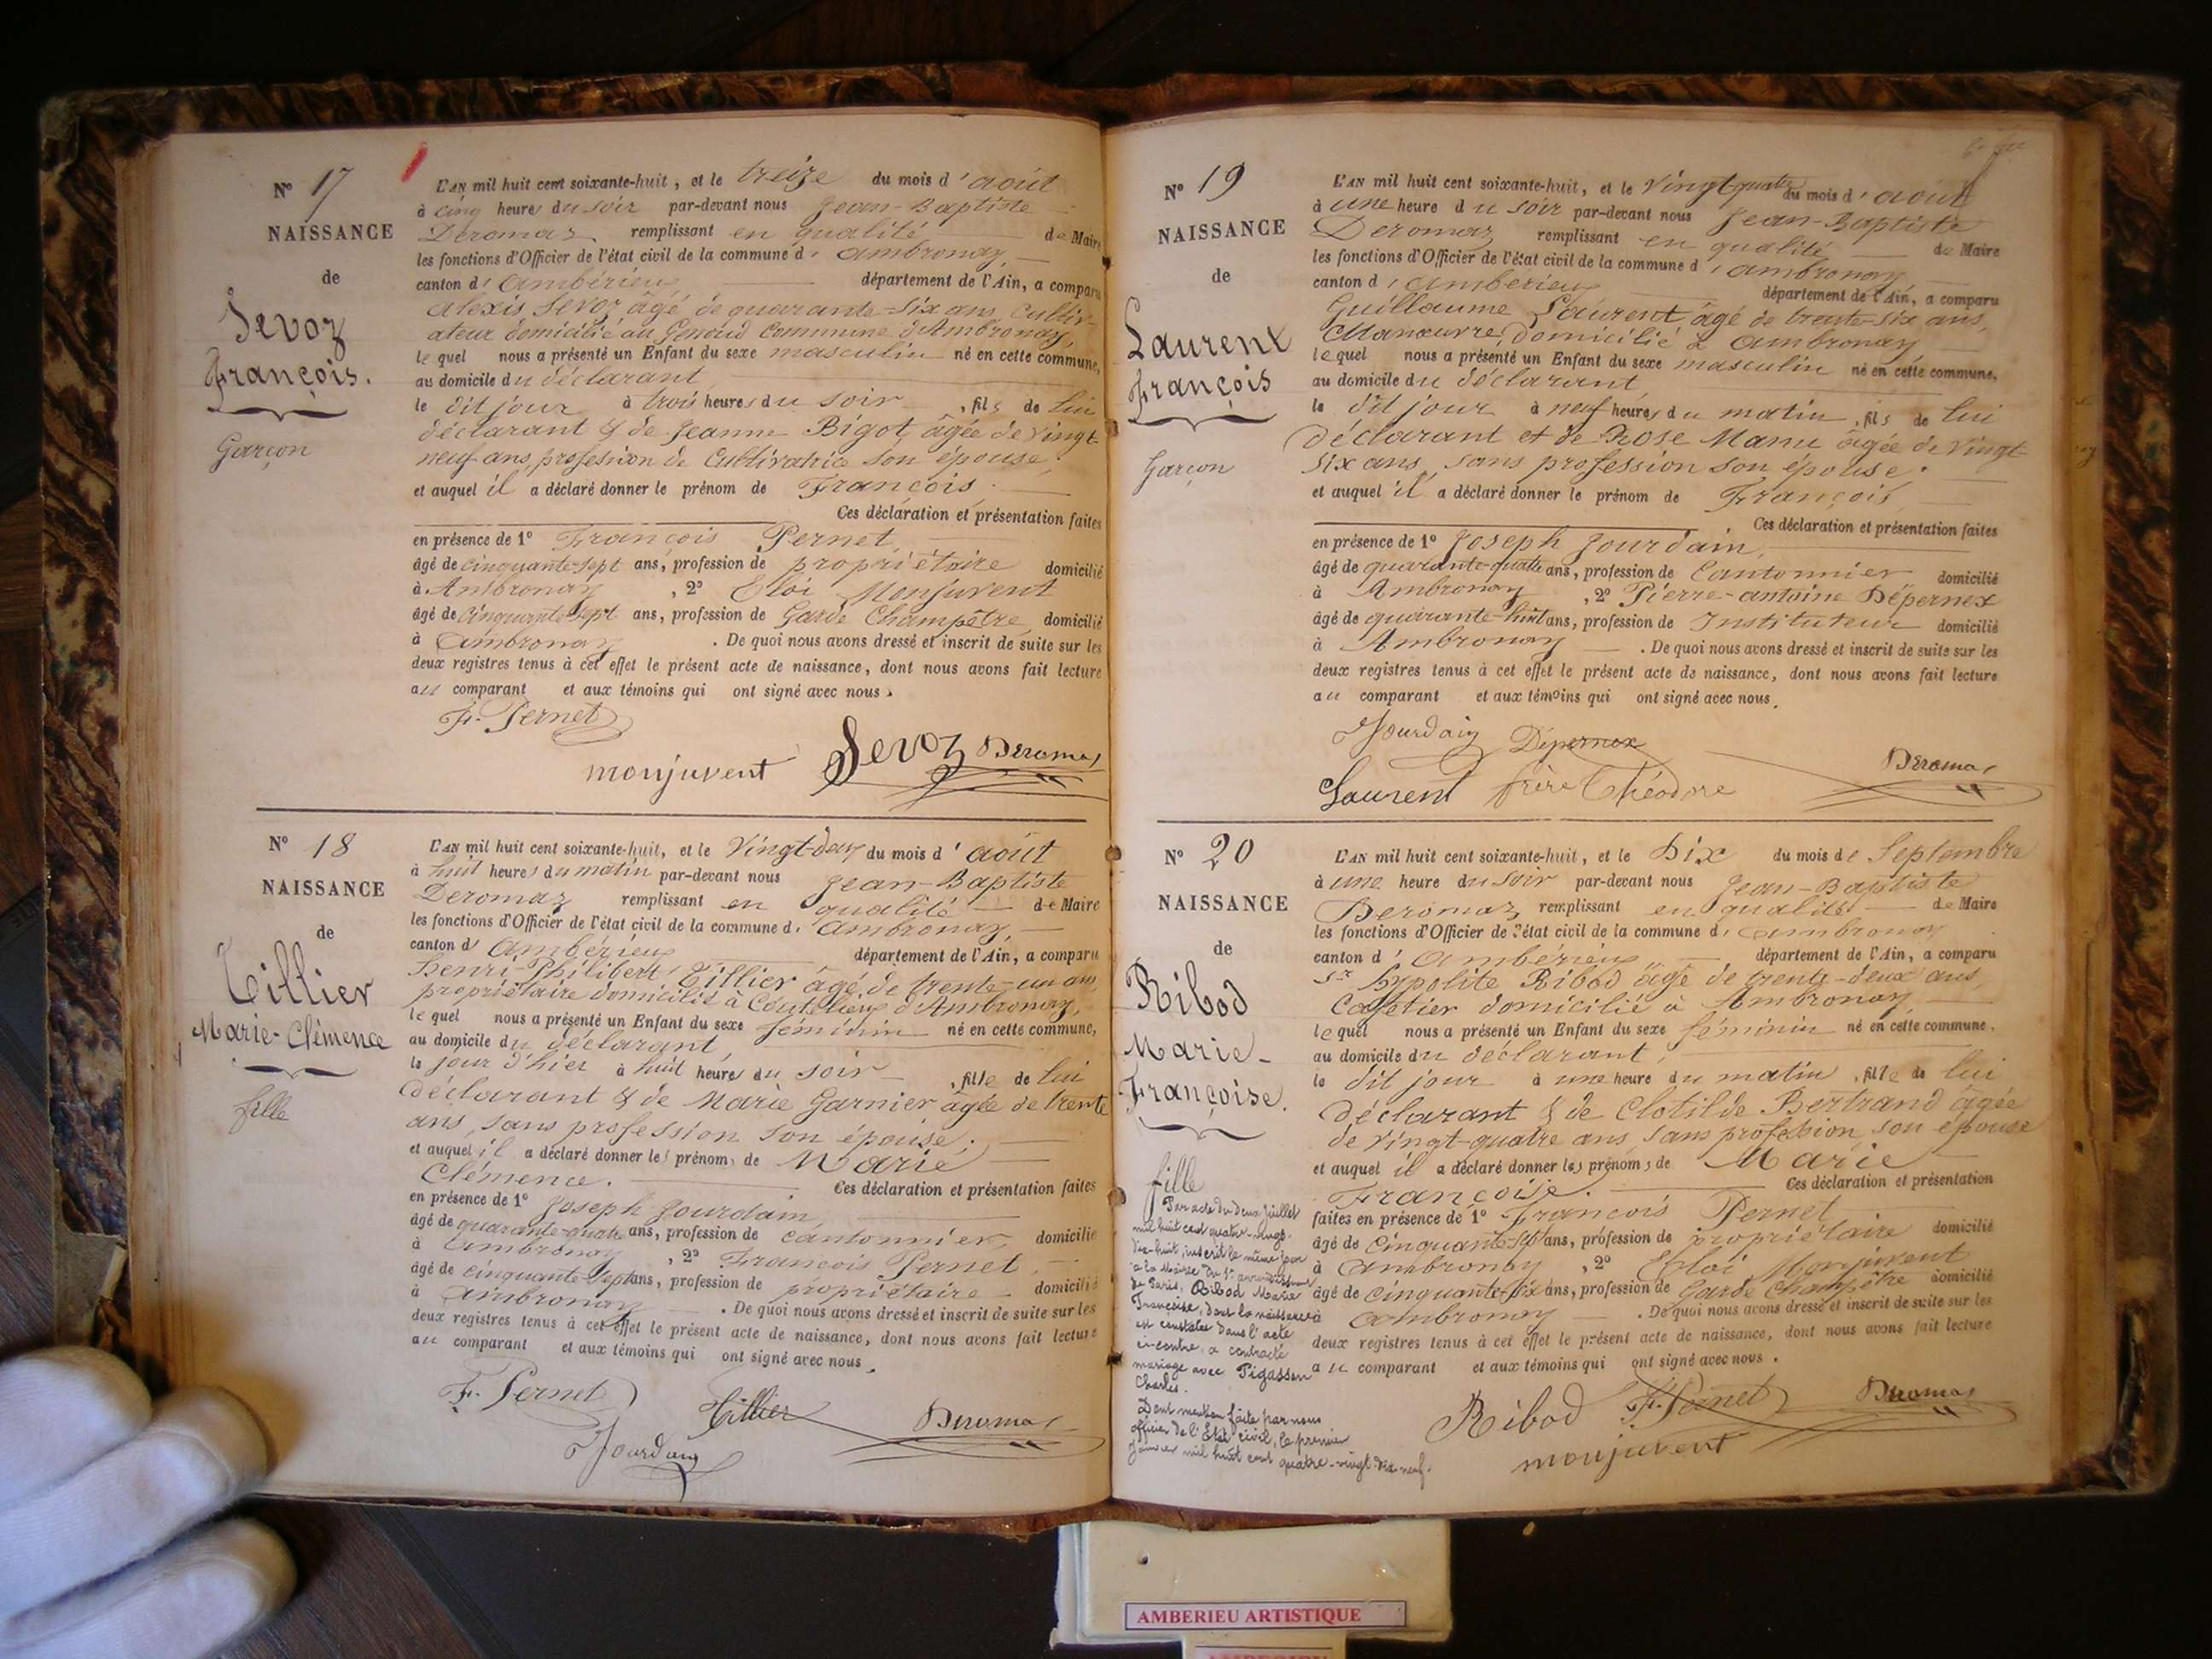 N° 17
NAISSANCE
de
Sevoz
François.
Garçon
L'AN mil huit cent soixante-huit, et le treize du mois d'août
à cinq heures du soir par-devant nous Jean-Baptiste
Deromaz remplissant en qualité de Maire
les fonctions d'Officier de l'état civil de la commune d'Ambronay
canton d'Ambérieu département de l'Ain, a comparu
Alexis Sevoz âgé de quarante-six ans Cultiv-
ateur domicilié au Genoud Commune d'Ambronay,
lequel nous a présenté un Enfant du sexe masculin né en cette commune,
au domicile du déclarant
le dit jour à trois heures du soir, fils de lui
déclarant & de Jeanne Bigot, âgée de vingt-
neuf ans, profession de Cultivatrice son épouse,
et auquel il a déclaré donner le prénom de François.
Ces déclaration et présentation faites
en présence de 1° François Pernet,
âgé de cinquante-sept ans, profession de propriétaire domicilié
à Ambronay, 2° Eloi Monjuvent
âgé de cinquante-sept ans, profession de Garde Champêtre domicilié
à Ambronay. De quoi nous avons dressé et inscrit de suite sur les
deux registres tenus à cet effet le présent acte de naissance, dont nous avons fait lecture
au comparant et aux témoins qui ont signé avec nous.
F. Pernet
monjuvent Sevoz Deromaz
N° 18
NAISSANCE
de
Tillier
Marie-Clémence
fille
L'AN mil huit cent soixante-huit, et le Vingt-deux du mois d'août
à huit heures du matin par-devant nous Jean-Baptiste
Deromaz remplissant en qualité de Maire
les fonctions d'Officier de l'état civil de la commune d'Ambronay,
canton d'Ambérieu département de l'Ain, a comparu
Henri-Philibert Tillier âgé de trente-un ans
propriétaire domicilié à d'Ambronay,
lequel nous a présenté un Enfant du sexe féminin né en cette commune,
au domicile du déclarant,
le jour d'hier à huit heures du soir, fille de lui
déclarant & de Marie Garnier âgée de trente
ans, sans profession son épouse.
et auquel il a déclaré donner les prénoms de Marie
Clémence. Ces déclaration et présentation faites
en présence de 1° Joseph Jourdain,
âgé de quarante-quatre ans, profession de cantonnier, domicilié
à Ambronay, 2° François Pernet,
âgé de cinquante-sept ans, profession de propriétaire domicilié
à Ambronay. De quoi nous avons dressé et inscrit de suite sur les
deux registres tenus à cet effet le présent acte de naissance, dont nous avons fait lecture
au comparant et aux témoins qui ont signé avec nous.
F. Pernet Tillier Deromaz
Jourdain
N° 19
NAISSANCE
de
Laurent
François
Garçon
L'AN mil huit cent soixante-huit, et le Vingt-quatre du mois d'août
à une heure du soir par-devant nous Jean-Baptiste
Deromaz remplissant en qualité de Maire
les fonctions d'Officier de l'état civil de la commune d'Ambronay
canton d'Ambérieu département de l'Ain, a comparu
Guillaume Laurent âgé de trente-six ans,
Manœuvre, domicilié à Ambronay
lequel nous a présenté un Enfant du sexe masculin né en cette commune.
au domicile du déclarant
le dit jour à neuf heures du matin, fils de lui
déclarant et de Rose Manu âgée de Vingt-
six ans, sans profession son épouse.
et auquel il a déclaré donner le prénom de François
Ces déclaration et présentation faites
en présence de 1° Joseph Jourdain,
âgé de quarante-quatre ans, profession de Cantonnier domicilié
à Ambronay, 2° Pierre-antoine Dépernex
âgé de quarante-huit ans, profession de Instituteur domicilié
à Ambronay. De quoi nous avons dressé et inscrit de suite sur les
deux registres tenus à cet effet le présent acte de naissance, dont nous avons fait lecture
au comparant et aux témoins qui ont signé avec nous.
Jourdain Dépernex Deromaz
Laurent frère Théodore
N° 20
NAISSANCE
de
Ribod
Marie-
Françoise.
fille
Par acte du deux Juillet
mil huit cent quatre-vingt-
dix-huit, inscrit le même jour
à la Mairie du arrondissement
de Paris, Ribod Marie
Françoise, dont la naissance
est constatée dans l'acte
ci-contre, a contracté
mariage avec Pigassou
Charles.
Dont mention faite par nous
officier de l'Etat civil, le premier
Janvier mil huit cent quatre-vingt-dix-neuf.
L'AN mil huit cent soixante-huit, et le Dix du mois de Septembre
à une heure du soir par-devant nous Jean-Baptiste
Deromaz remplissant en qualité de Maire
les fonctions d'Officier de l'état civil de la commune d'Ambronay
canton d'Ambérieu, département de l'Ain, a comparu
Sr hypolite Ribod âgé de trente-deux ans,
Cafetier domicilié à Ambronay,
lequel nous a présenté un Enfant du sexe féminin né en cette commune.
au domicile du déclarant,
le dit jour à une heure du matin, fille de lui
déclarant & de Clotilde Bertrand âgée
de vingt-quatre ans, sans profession, son épouse
et auquel il a déclaré donner les prénoms de Marie
Françoise. Ces déclaration et présentation
faites en présence de 1° François Pernet
âgé de cinquante-sept ans, profession de propriétaire domicilié
à Ambronay, 2° Eloi Monjuvent
âgé de cinquante-six ans, profession de Garde Champêtre domicilié
à Ambronay. De quoi nous avons dressé et inscrit de suite sur les
deux registres tenus à cet effet le présent acte de naissance, dont nous avons fait lecture
au comparant et aux témoins qui ont signé avec nous.
Ribod F. Pernet Deromaz
monjuvent
AMBERIEU ARTISTIQUE